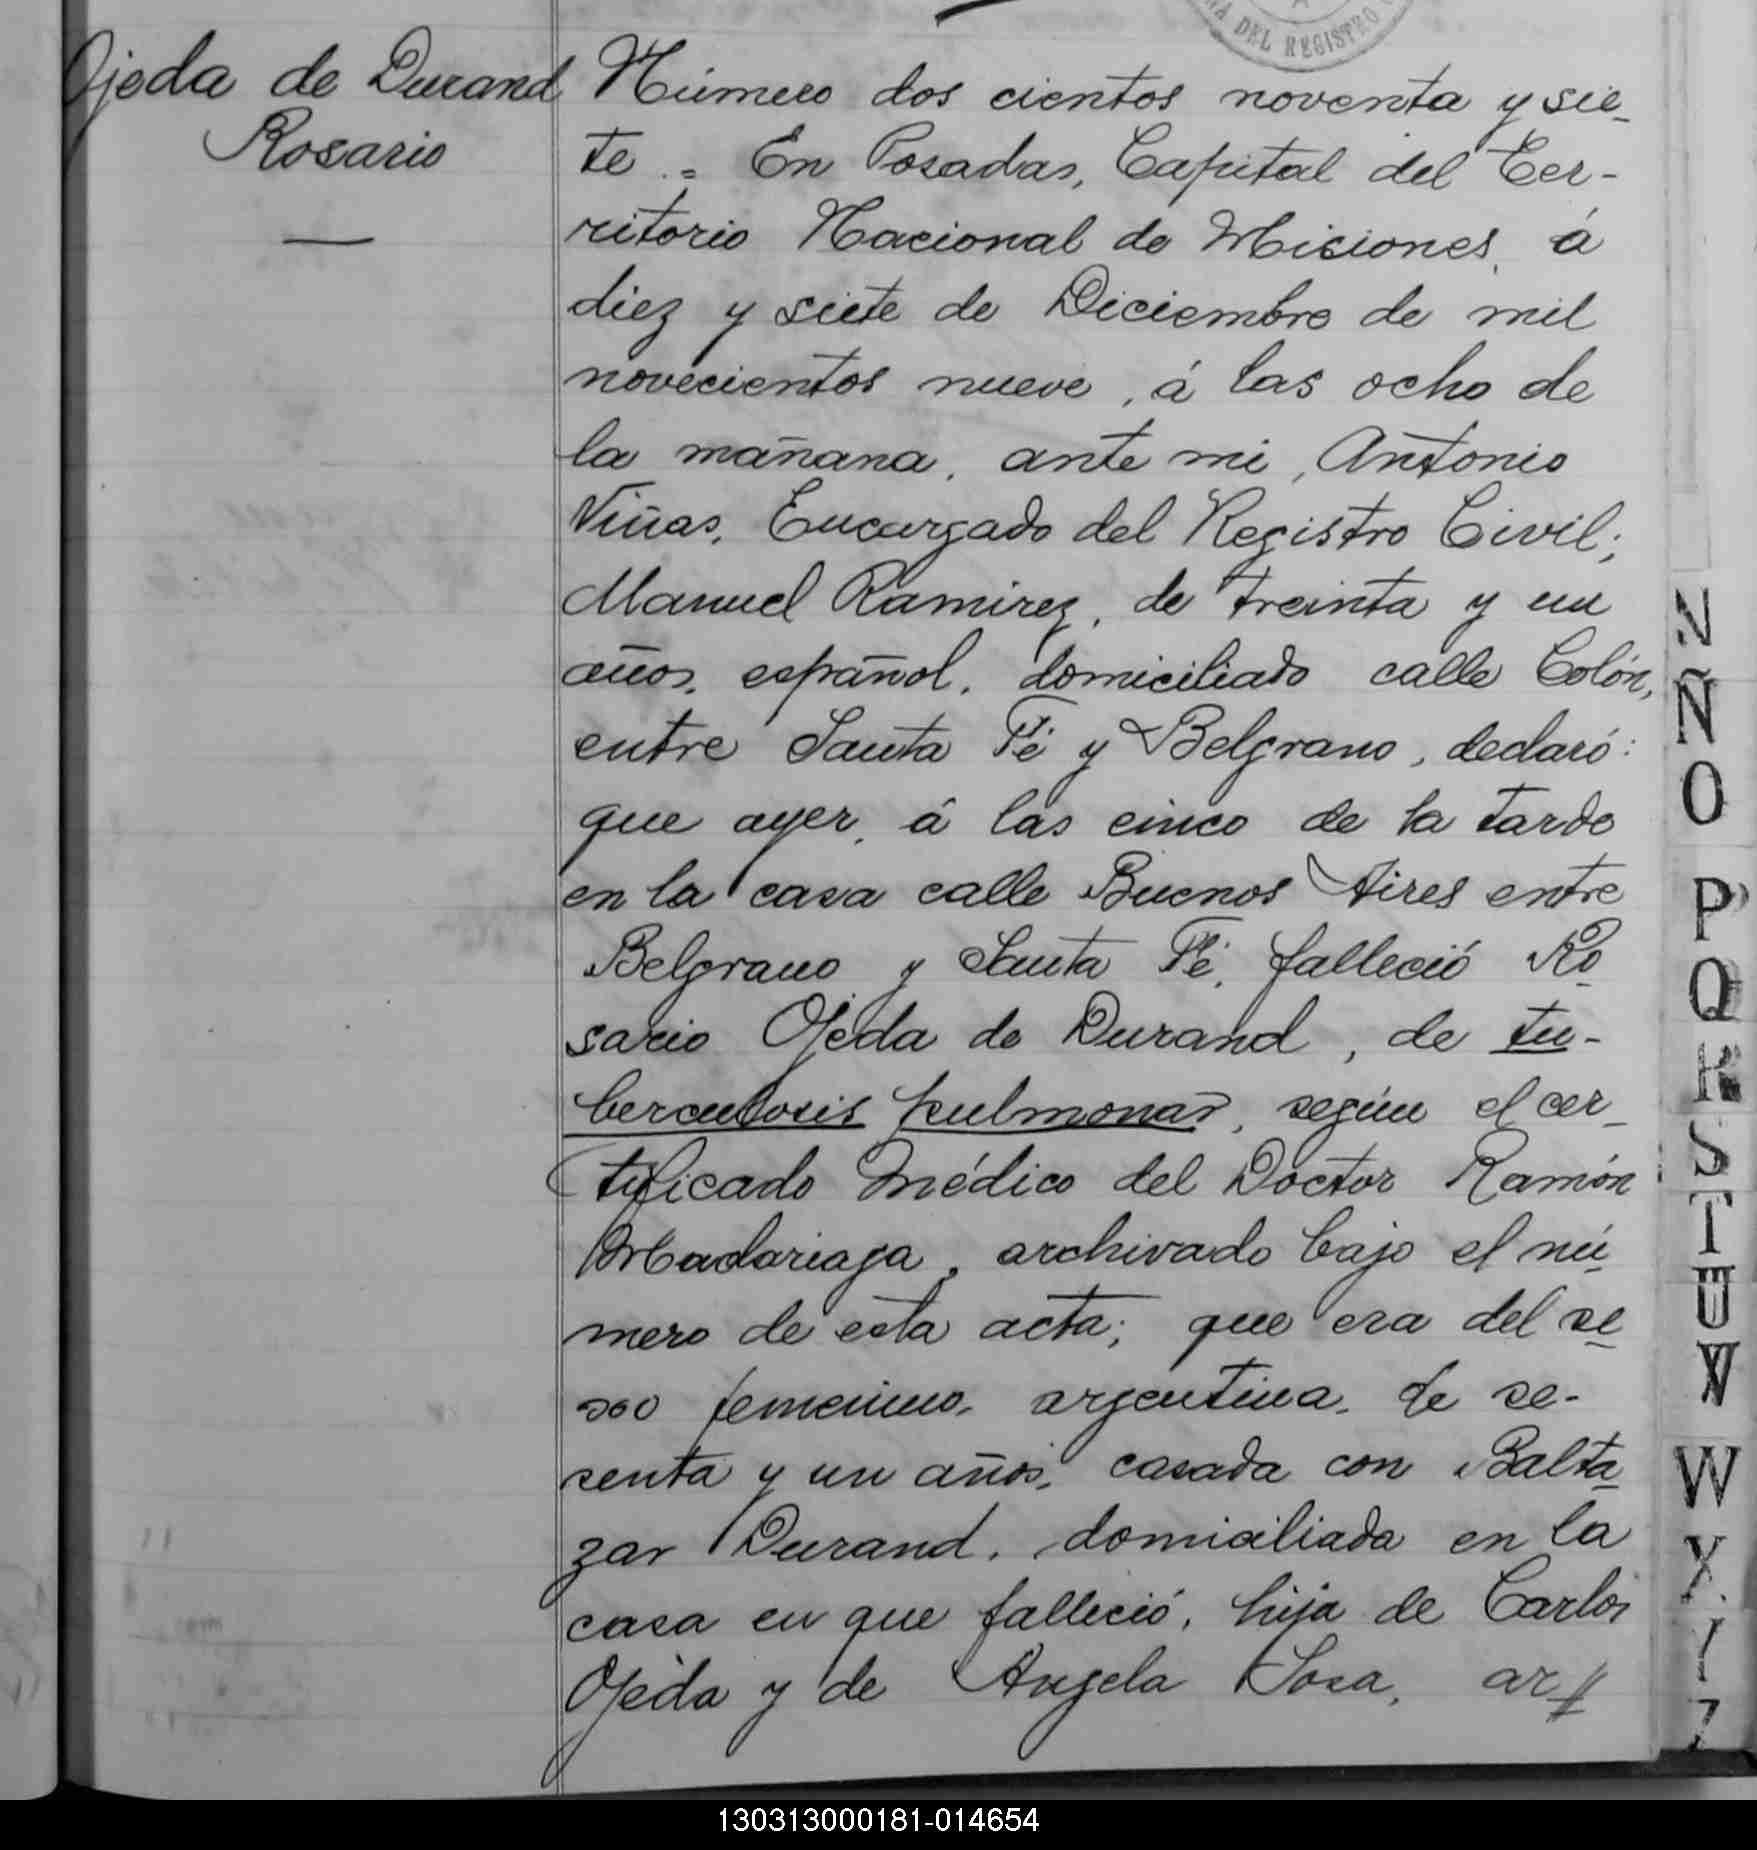 NA DEL REGISTRO
Ojeda de Durand
Rosario
Número dos cientos noventa y sie-
te.= En Posadas, Capital del Ter-
ritorio Nacional de Misiones, á
diez y siete de Diciembre de mil
novecientos nueve, á las ocho de
la mañana, ante mi, Antonio
Viñas, Encargado del Registro Civil;
Manuel Ramirez, de treinta y un
años, español, domiciliado calle Colón,
entre Santa Fé y Belgrano, declaró:
que ayer, á las cinco de la tarde
en la casa calle Buenos Aires entre
Belgrano y Santa Fé, falleció Ro-
sario Ojeda de Durand, de tu-
berculosis pulmonar, según el cer-
tificado médico del Doctor Ramón
Madariaga, archivado bajo el nú-
mero de esta acta; que era del se-
xo femenino, argentina, de se-
senta y un años, casada con Balta-
zar Durand, domiciliada en la
casa en que falleció, hija de Carlos
Ojeda y de Angela Sosa, ar//
N
Ñ
O
P
Q
R
S
T
U
V
W
X
Y
Z
130313000181-014654